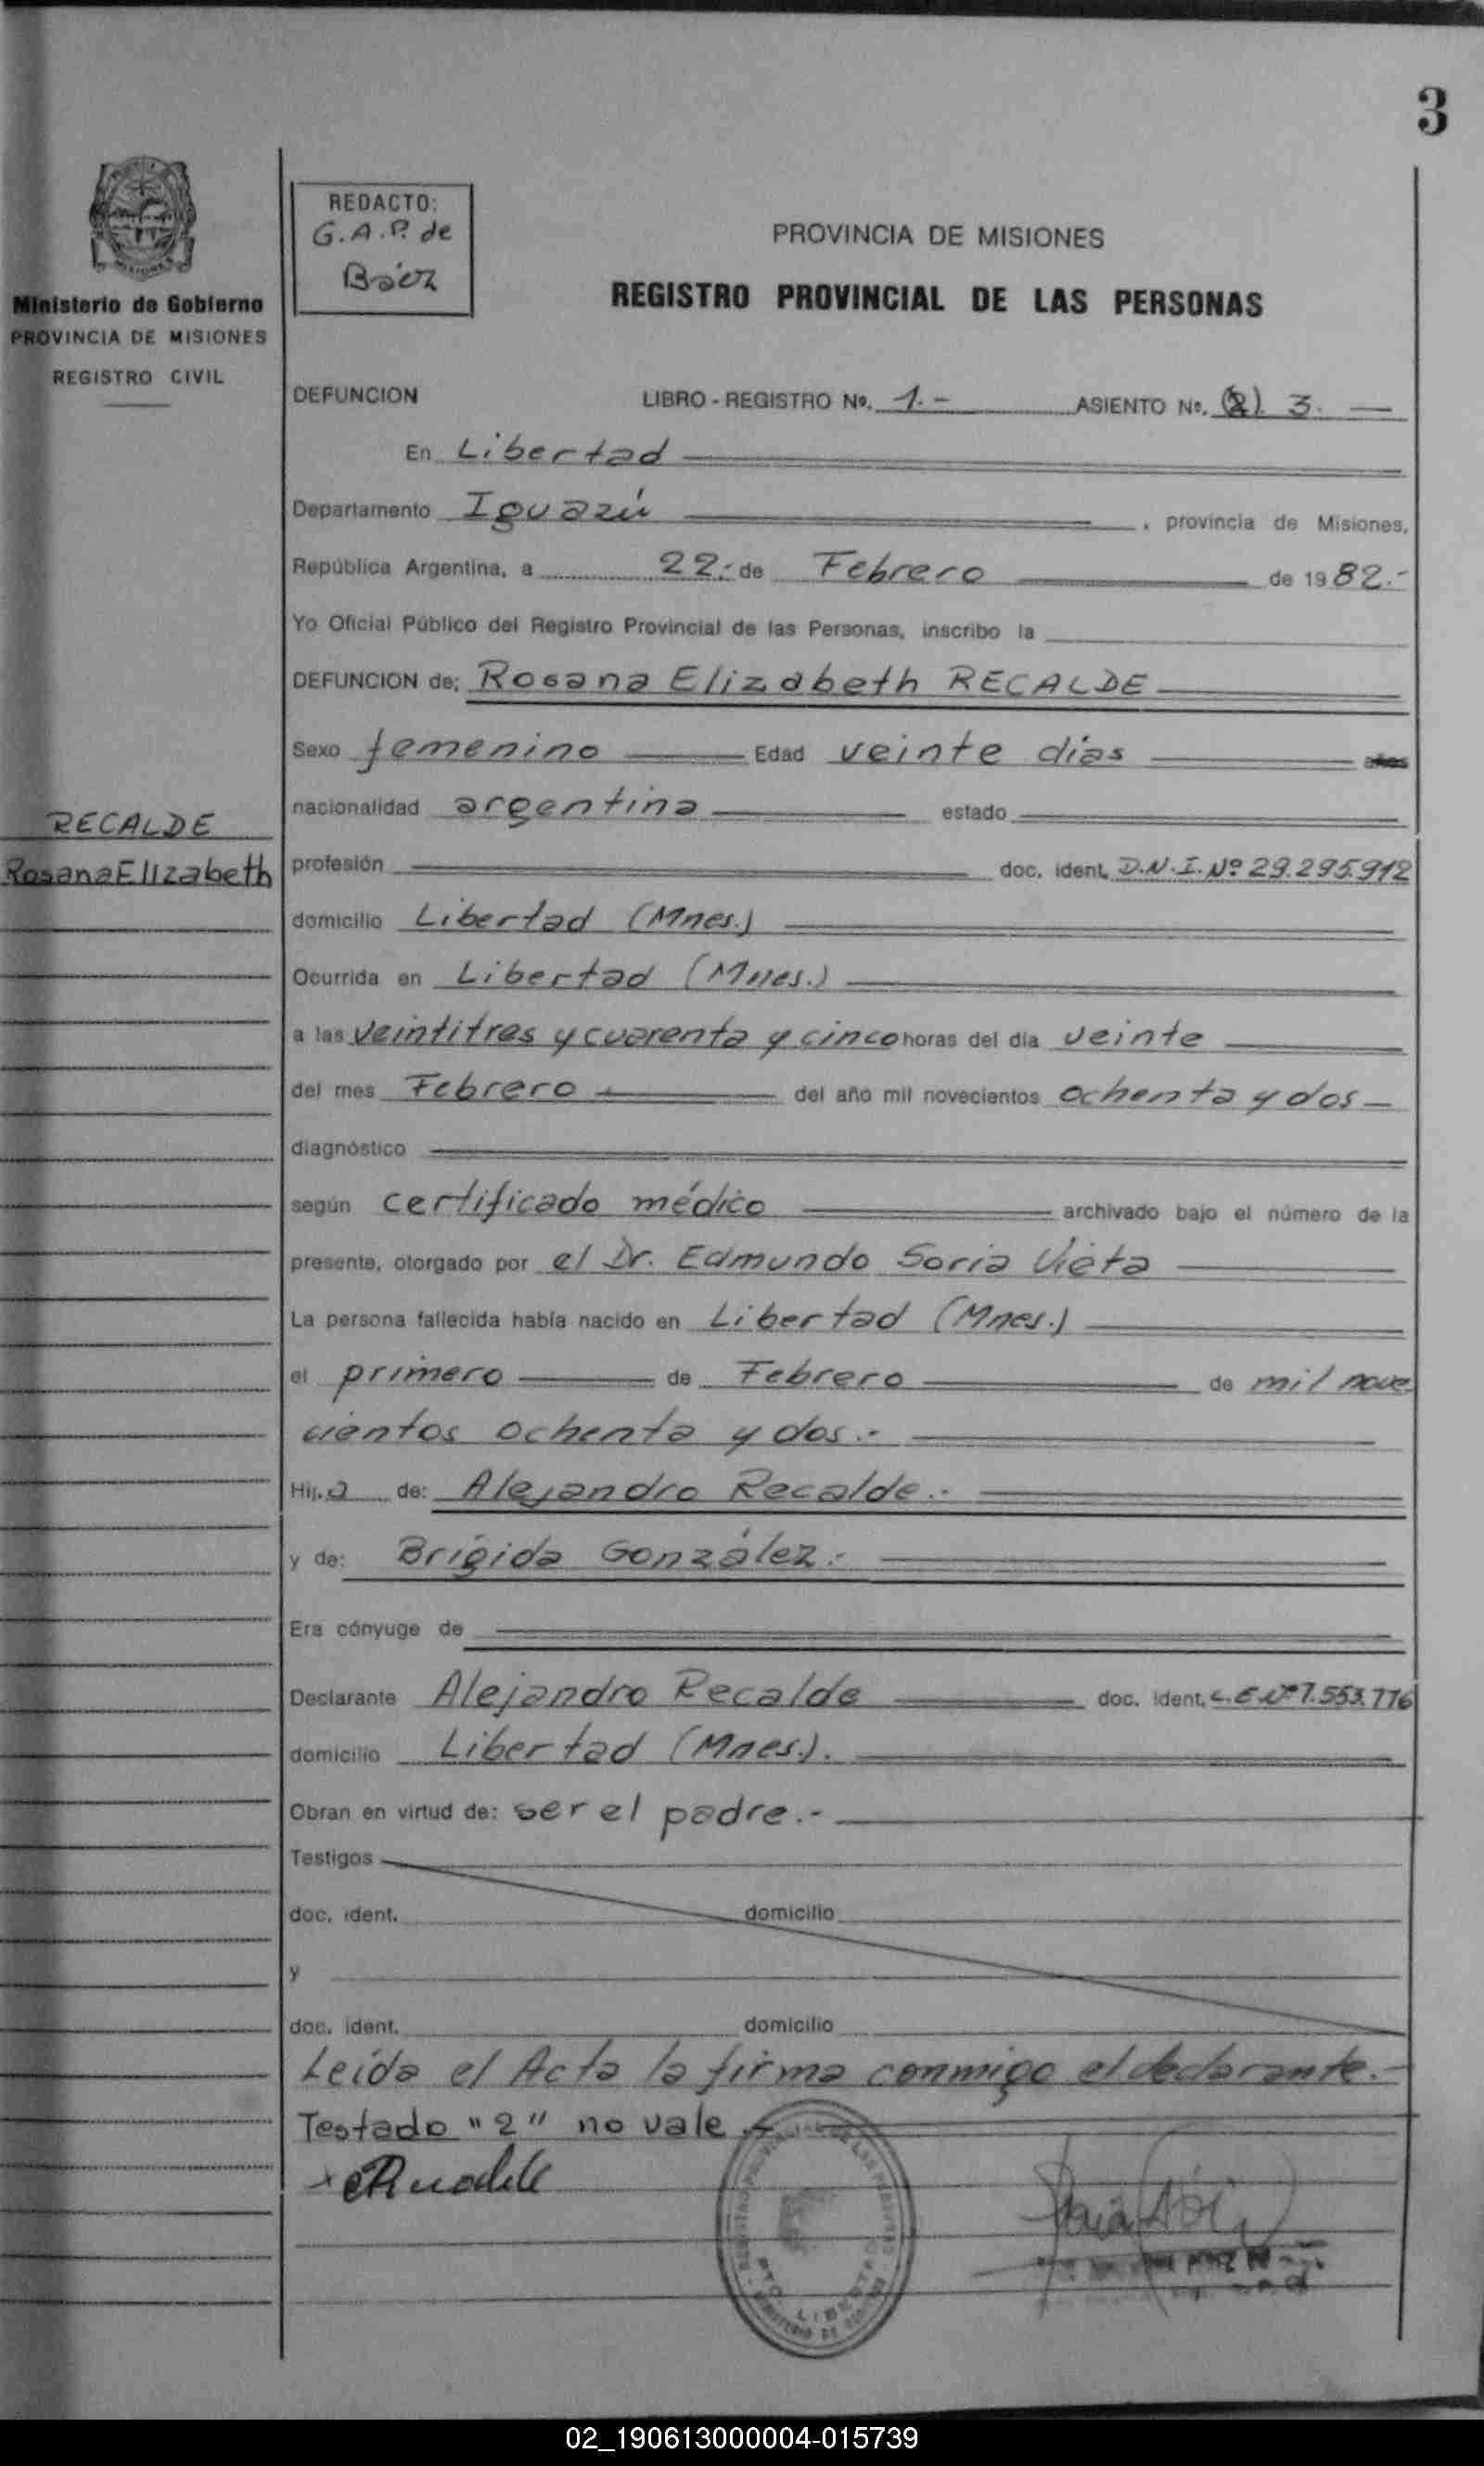 3
REDACTO:
G.A.P. de
Báez
PROVINCIA DE MISIONES
REGISTRO PROVINCIAL DE LAS PERSONAS
Ministerio de Gobierno
PROVINCIA DE MISIONES
REGISTRO CIVIL
DEFUNCION LIBRO - REGISTRO Nº. 1.- ASIENTO Nº. (2). 3.
En Libertad
Departamento Iguazú , provincia de Misiones,
República Argentina, a 22.- de Febrero de 1982.-
Yo Oficial Público del Registro Provincial de las Personas, inscribo la
DEFUNCION de; Rosana Elizabeth RECALDE
Sexo femenino Edad veinte días años
nacionalidad argentina estado
RECALDE
Rosana Elizabeth
profesión doc. ident. D.N.I. Nº 29.295.912
domicilio Libertad (Mnes.)
Ocurrida en Libertad (Mnes.)
a las veintitres y cuarenta y cinco horas del día veinte
del mes Febrero del año mil novecientos ochenta y dos
diagnóstico
según certificado médico archivado bajo el número de la
presente, otorgado por el Dr. Edmundo Soria Vieta
La persona fallecida había nacido en Libertad (Mnes.)
el primero de Febrero de mil nove
cientos ochenta y dos.-
Hij.a de: Alejandro Recalde.-
y de: Brígida González.-
Era cónyuge de
Declarante Alejandro Recalde doc. ident. L.E.Nº 7.553.776
domicilio Libertad (Mnes.).
Obran en virtud de: ser el padre.-
Testigos
doc. ident. domicilio
y
doc. ident. domicilio
Leída el Acta la firma conmigo el declarante.-
Testado "2" no vale
PTO. LIBERTAD
02_190613000004-015739